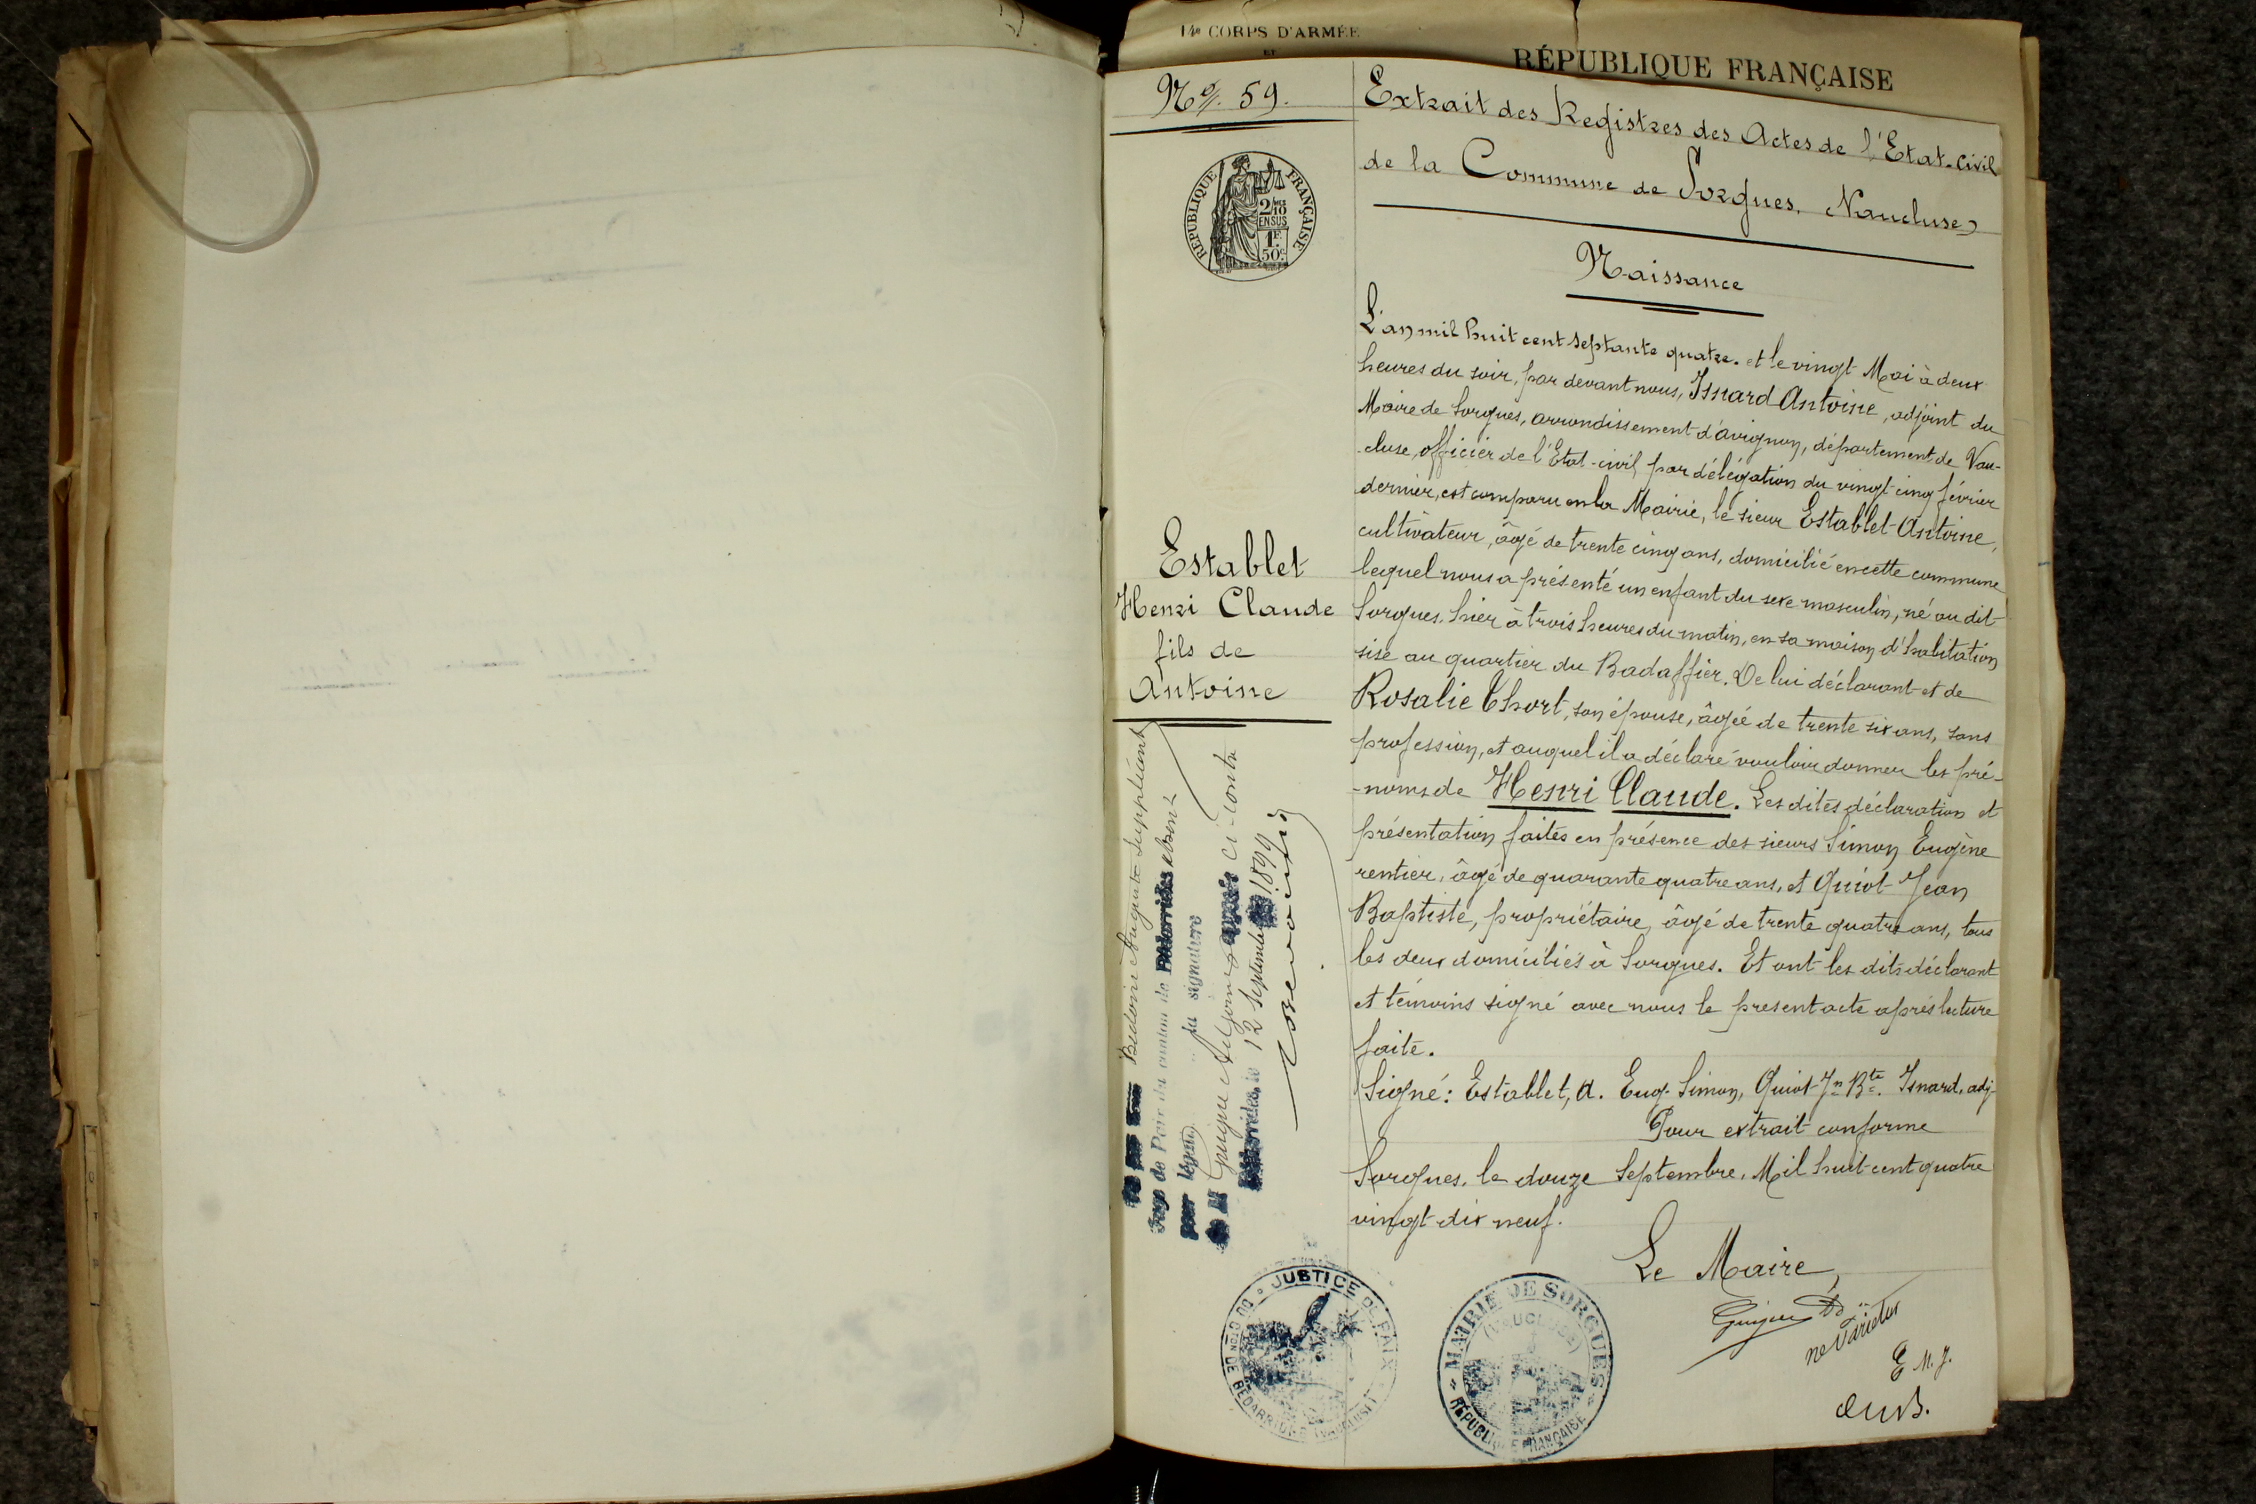 CORPS D'ARMÉE
ET
RÉPUBLIQUE FRANÇAISE
Nº 59.
RÉPUBLIQUE FRANÇAISE
2/10
EN SUS
1F
50c
Establet
Henri Claude
fils de
Antoine
Bédoin Auguste Suppléant
Juge de Paix du canton de Bédarrides absent
pour légon
sa signature
de M Guigue Adjoint apposée ci-contre
Bédarrides, le 12 septembre 1899
JUSTICE DE PAIX
DU CTON DE BÉDARRIDES (VAUCLUSE)
Extrait des Registres des Actes de l'Etat-civil
de la Commune de Sorgues, (Vaucluse)
Naissance
L'an mil huit cent septante quatre. et le vingt Mai à deux
heures du soir, par devant nous, Isnard Antoine, adjoint du
Maire de Sorgues, arrondissement d'avignon, département de Vau-
-cluse, officier de l'Etat-civil, par délégation du vingt-cinq février
dernier, est comparu en la Mairie, le sieur Establet Antoine,
cultivateur, âgé de trente cinq ans, domicilié en cette commune
lequel nous a présenté un enfant du sexe masculin, né au dit
Sorgues, hier à trois heures du matin, en sa maison d'habitation
sise au quartier du Badaffier. De lui déclarant et de
Rosalie Thort, son épouse, âgée de trente six ans, sans
profession, et auquel il a déclaré vouloir donner les pré-
-noms de Henri Claude. Les dites déclaration et
présentation faites en présence des sieurs Simon Eugène
rentier, âgé de quarante quatre ans, et Quiot Jean
Baptiste, propriétaire, âgé de trente quatre ans, tous
les deux domiciliés à Sorgues. Et ont les dits déclarant
et témoins signé avec nous le present acte après lecture
faite.
Signé: Establet, A. Eug. Simon, Quiot Jn Bte. Isnard, adj-
Pour extrait conforme
Sorgues, le douze Septembre, Mil huit cent quatre
vingt dix neuf.
Le Maire,
Guigue
ne varietur
E. M. J.
MAIRIE DE SORGUES
(VAUCLUSE)
RÉPUBLIQUE FRANÇAISE